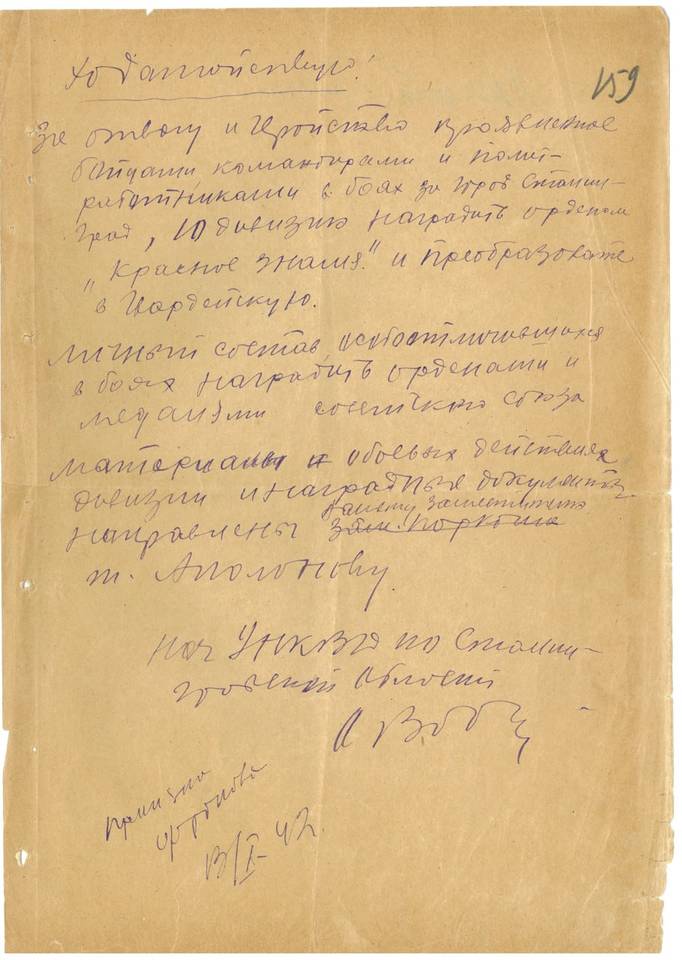 159
Ходатайствую!
За отвагу и геройство проявленное
бойцами командирами и полит-
работниками в боях за город Сталин-
град, 10 дивизию наградить орденом
"Красное знамя." и преобразовать
в Гвардейскую.
Личный состав, особоотличившихся
в боях наградить орденами и
медалями советского союза
Материалы о боевых действиях
дивизии и наградные документы
Вашему заместителю
направлены зам. наркома
т. Аполонову.
Нач УНКВД по Сталин-
градской области
13/X-42.